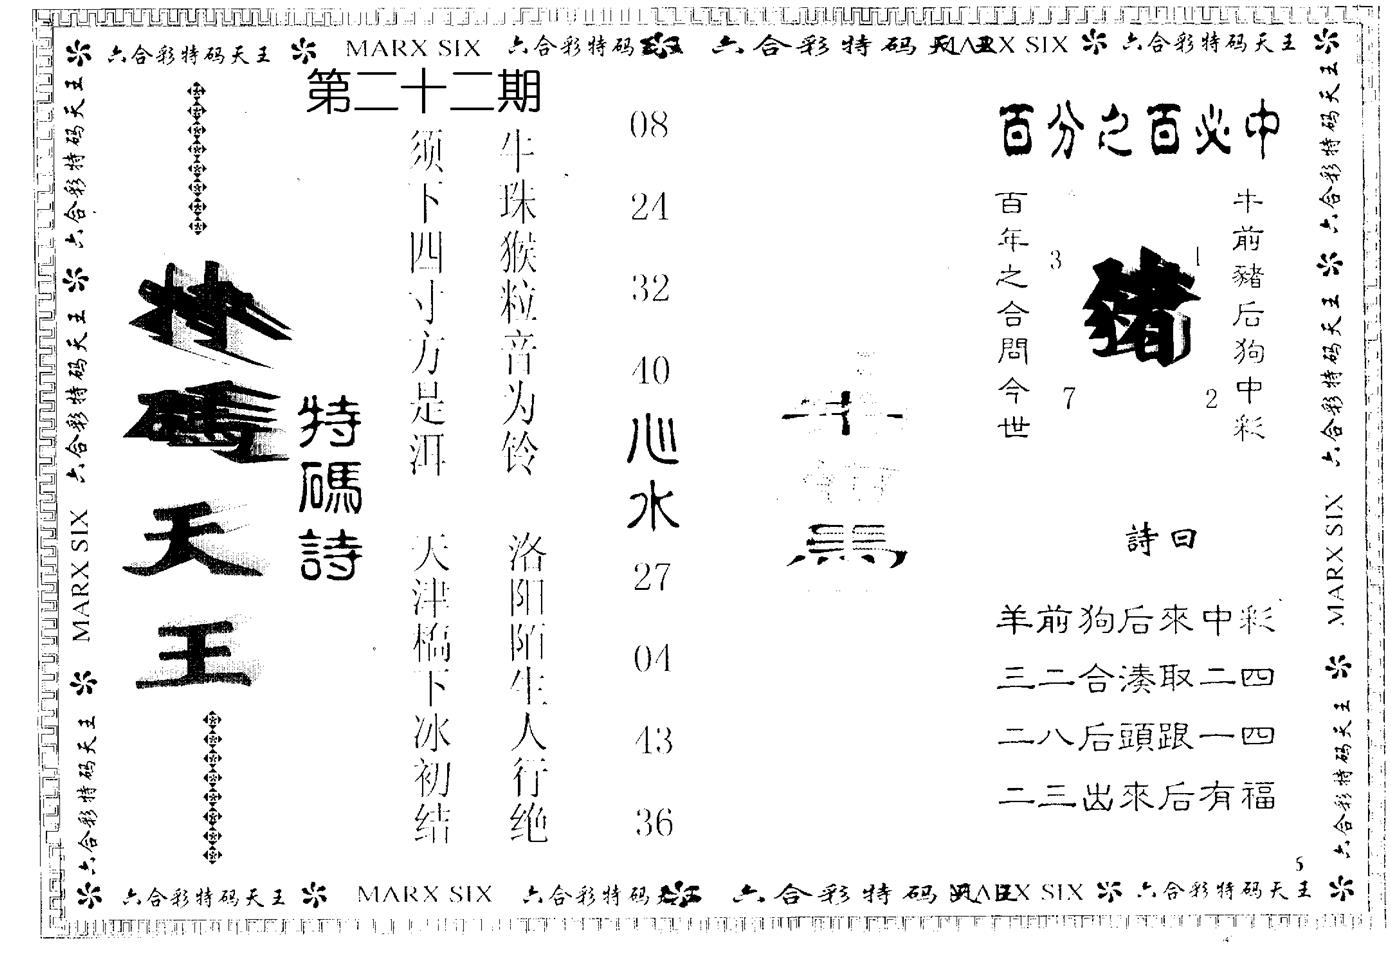 六合彩特码天王 MARX SIX 六合彩特码 六合彩特码天王 MARX SIX 六合彩特码天王
第二十二期
特碼天王
特碼詩
牛珠猴粒音为铃 洛阳陌生人行绝
须下四寸方是洱 天津槗下冰初结
08
24
32
40
心水
27
04
43
36
百分之百必中
牛前豬后狗中彩
豬
1
2
3
7
百年之合問今世
詩曰
羊前狗后來中彩
三二合湊取二四
二八后頭跟一四
二三出來后有福
5
六合彩特码天王 六合彩特码天王 MARX SIX 六合彩特码天王
六合彩特码天王 六合彩特码天王 MARX SIX 六合彩特码天王
六合彩特码天王 MARX SIX 六合彩特码 六合彩特码 MARX SIX 六合彩特码天王